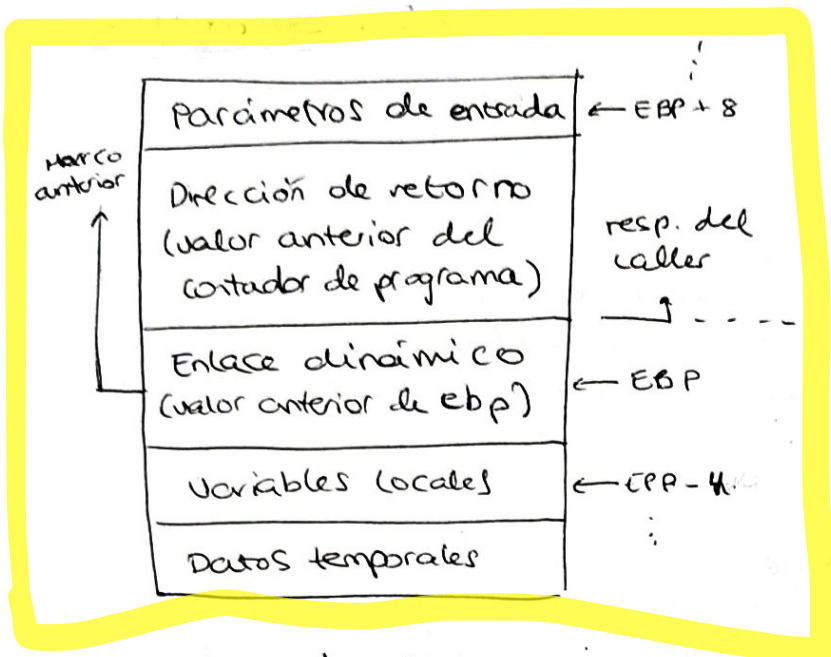 Parámetros de entrada ← EBP + 8
Marco
anterior
Dirección de retorno
(valor anterior del
contador de programa)
resp. del
caller
Enlace dinámico
(valor anterior de ebp)
← EBP
Variables locales
← EBP - 4
Datos temporales